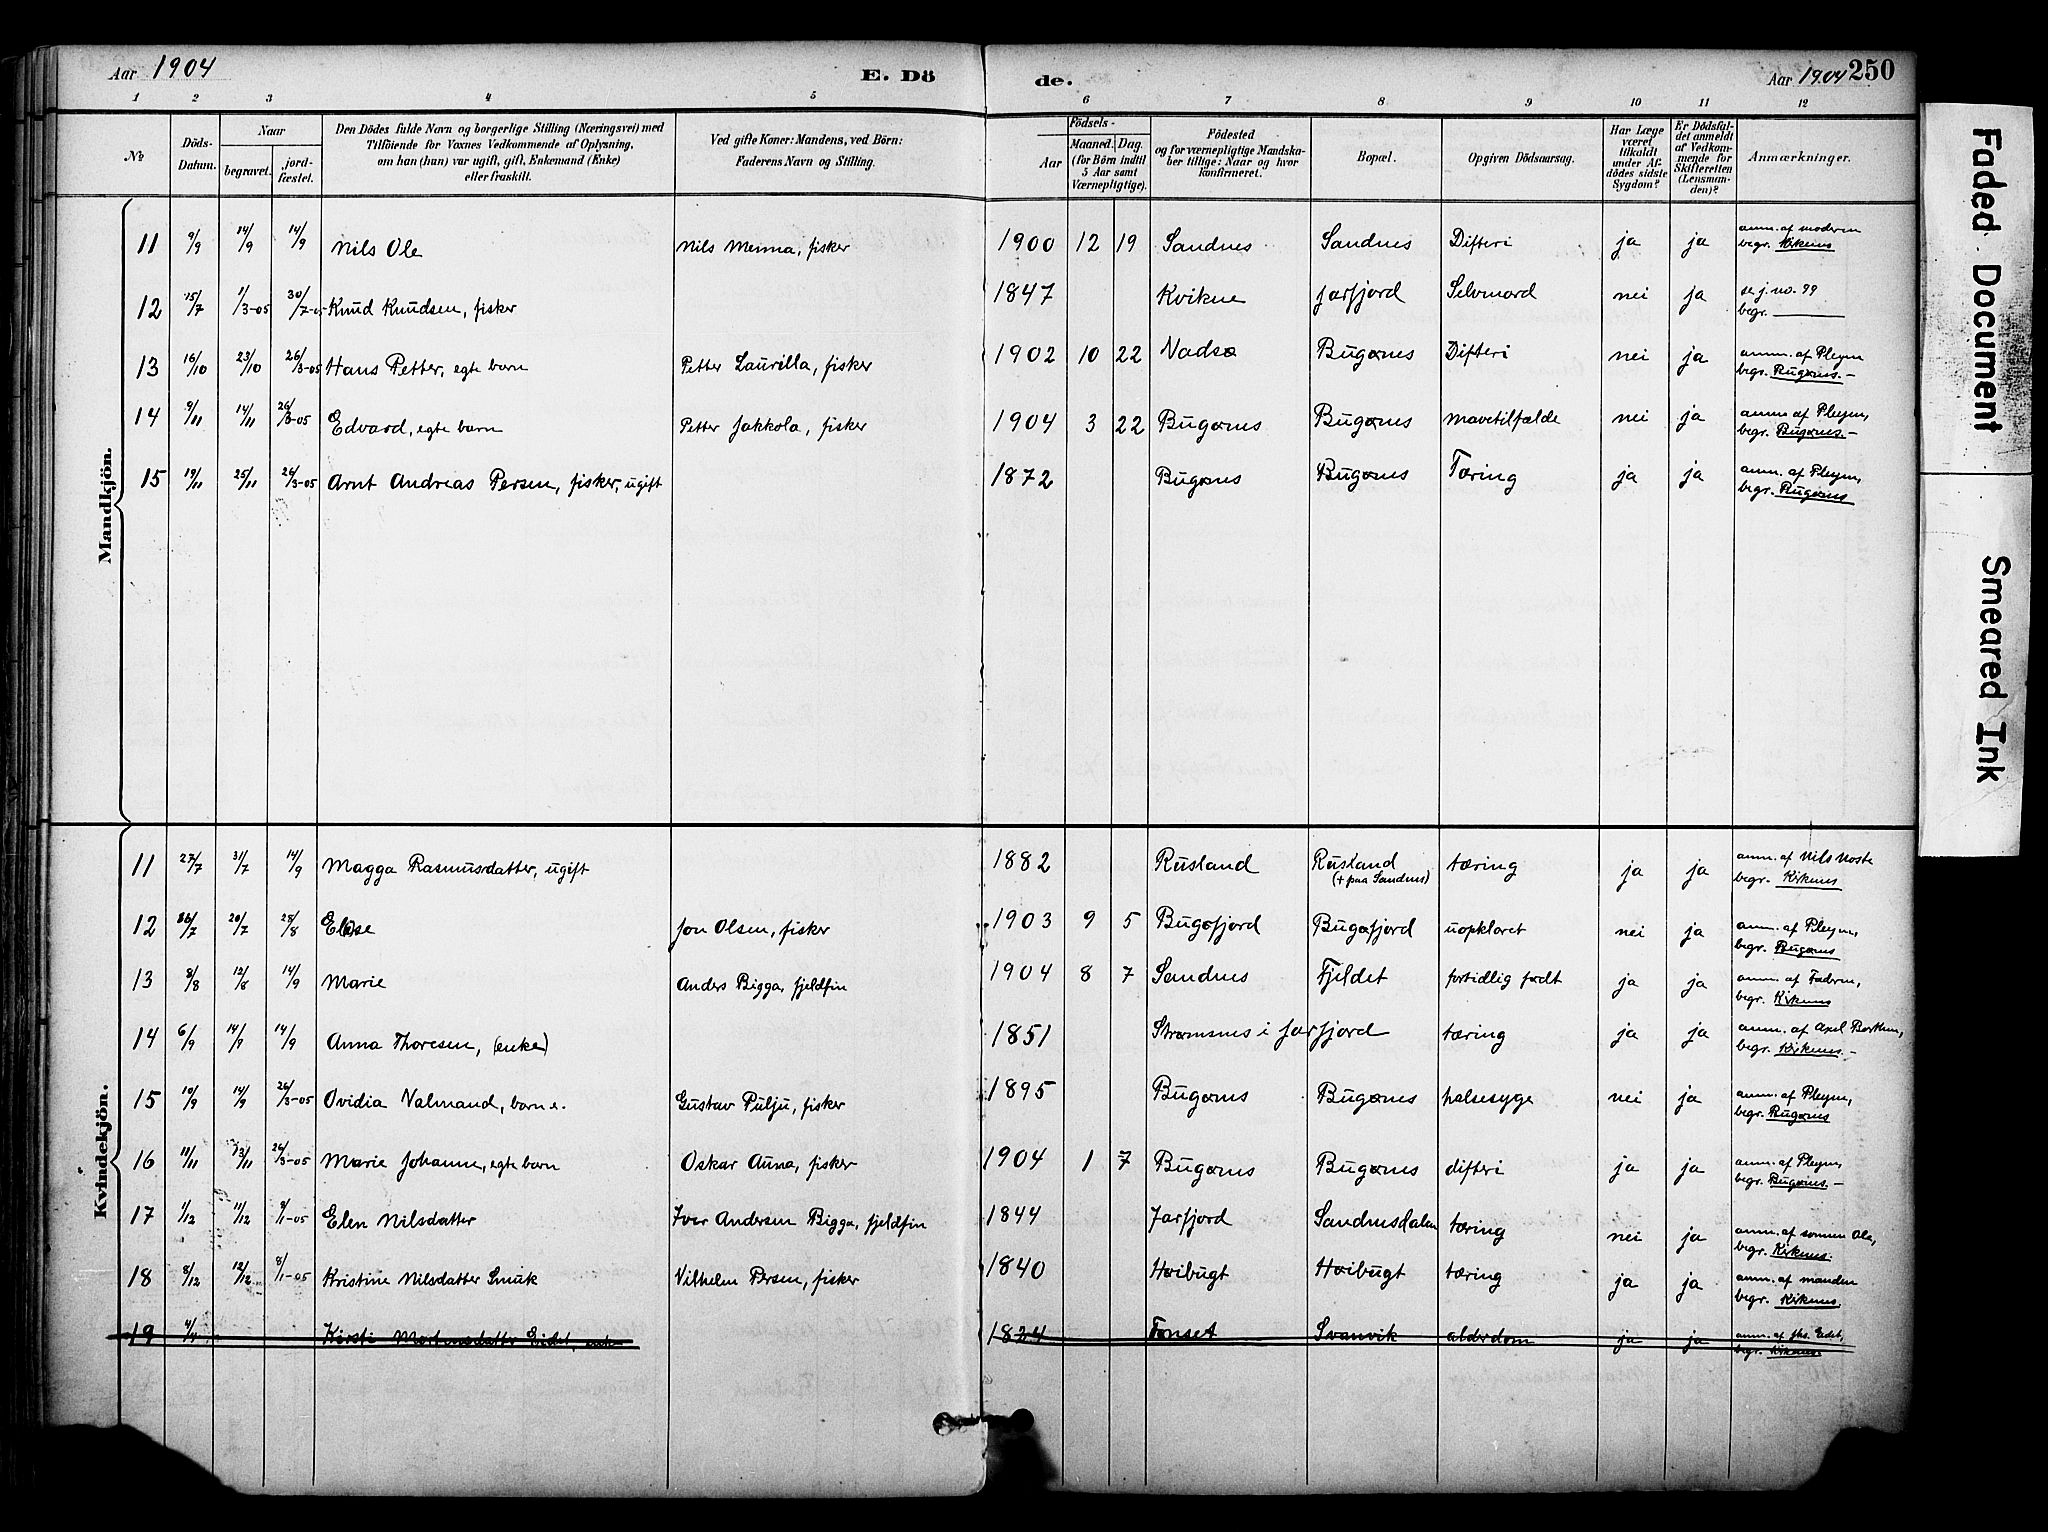 Aar 1904 E. Dö de. Aar 1904 250
1 2 3 4 5 6 7 8 9 10 11 12
№ Döds-Datum. Naar begravet. jord-fæstet. Den Dödes fulde Navn og borgerlige Stilling (Næringsvei) med Tilföiende for Voxnes Vedkommende af Oplysning, om han (hun) var ugift, gift, Enkemand (Enke) eller fraskilt. Ved gifte Koner: Mandens, ved Börn: Faderens Navn og Stilling. Födsels- Aar Maaned. Dag. (for Börn indtil 5 Aar samt Værnepligtige). Födested og for værnepligtige Mandskaber tillige: Naar og hvor konfirmeret. Bopæl. Opgiven Dödsaarsag. Har Læge været tilkaldt under Afdödes sidste Sygdom? Er Dödsfaldet anmeldt af Vedkommende for Skifteretten (Lensmanden)? Anmærkninger.
Mandkjön.
11 9/9 14/9 14/9 Nils Ole Nils Menna, fisker 1900 12 19 Sandnes Sandnes Difteri ja ja anm. af moderen begr. Kirkenes
12 15/7 1/3-05 30/7-05 Knud Knudsen, fisker 1847 Kvikne Jarfjord Selvmord nei ja se j. no. 99 begr.
13 16/10 23/10 26/3-05 Hans Petter, egte barn Petter Laurilla, fisker 1902 10 22 Vadsø Bugønes Difteri nei ja anm. af Pleym begr. Bugønes.-
14 9/11 14/11 26/3-05 Edvard, egte barn Petter Jakkola, fisker 1904 3 22 Bugønes Bugønes mavetilfælde nei ja anm. af Pleym, begr. Bugønes.-
15 19/11 25/11 26/3-05 Arnt Andreas Persen, fisker, ugift 1872 Bugønes Bugønes Tæring ja ja anm. af Pleym, begr. Bugønes
Kvindekjön.
11 27/7 31/7 14/9 Magga Rasmusdatter, ugift 1882 Rusland Rusland (+ paa Sandnes) tæring ja ja anm. af Nils Noste begr. Kirkenes
12 16/7 20/7 25/8 Jon Olsen, fisker 1903 9 5 Bugøfjord Bugøfjord uopklaret nei ja anm. af Pleym, begr. Bugønes
13 8/8 12/8 14/9 Marie Anders Bigga, fjeldfin 1904 8 7 Sandnes Fjeldet fortidlig født ja ja anm. af Faderen, begr. Kirkenes
14 6/9 14/9 14/9 Anna Thoresen, (enke) 1851 Strømsnes i Jarfjord tæring ja ja anm. af Axel Borthen, begr. Kirkenes.-
15 10/9 14/9 26/3-05 Ovidia Valmand, barn e. Gustav Pulju, fisker 1895 Bugønes Bugønes halsesyge nei ja anm. af Pleym, begr. Bugønes
16 11/11 13/11 26/3-05 Marie Johanne, egte barn Oskar Auna, fisker 1904 1 7 Bugønes Bugønes difteri ja ja anm. af Pleym, begr. Bugønes.-
17 1/12 11/12 8/1-05 Elen Nilsdatter Iver Andersen Bigga, fjeldfin 1844 Jarfjord Sandnesdalen tæring nei ja anm. af sønnen Ole, begr. Kirkenes.
18 8/12 12/12 8/1-05 Kristine Nilsdatter Smuk Vilhelm Persen, fisker 1840 Høibugt Høibugt tæring ja ja anm. af manden begr. Kirkenes.
19 Kirsti Mortensdatter Eidet, enke 1824 Tønset Svanvik alderdom ja ja anm. af Eidet, begr. Kirkenes
Faded Document
Smeared Ink